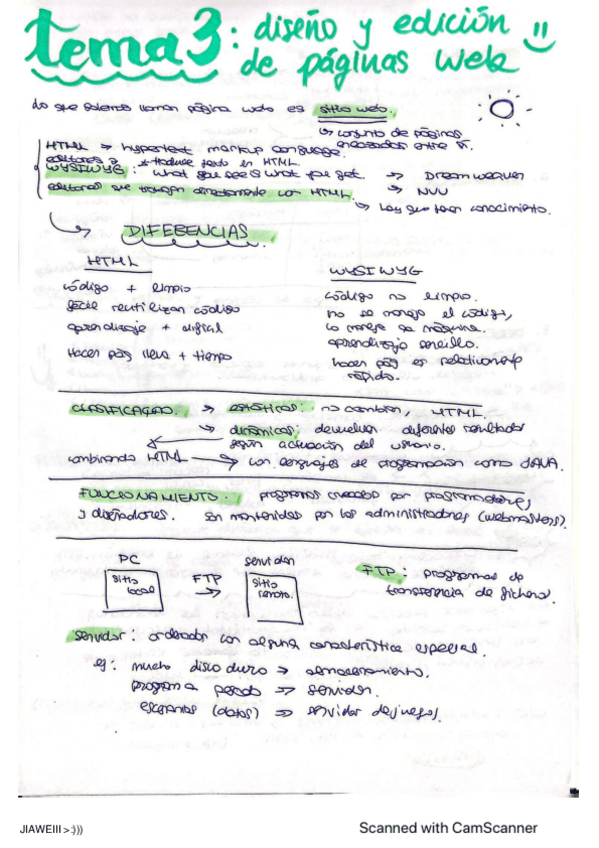 tema 3: diseño y edición
de páginas web
lo que solemos llamar página web es sitio web.
↳ conjunto de páginas
enlazadas entre sí.
HTML → hypertext markup language.
editores * traduce texto en HTML.
WYSIWYG: what you see is what you get. → Dreamweaver
editores que trabajan directamente con HTML. → NVU
↳ hay que tener conocimiento.
DIFERENCIAS
HTML
código + limpio
fácil reutilizar código
aprendizaje + difícil
Hacer pág lleva + tiempo
WYSIWYG
código no limpio.
no se maneja el código,
lo maneja la máquina.
aprendizaje sencillo.
hacer pág es
rápido.
CLASIFICAÇÃO: → estáticas: no cambian, HTML.
→ dinámicas: devuelven diferentes resultados
según actuación del usuario.
combinando HTML → con lenguajes de programación como JAVA.
FUNCIONAMIENTO: programas creados por programadores
y diseñadores. son mantenidas por los administradores (webmasters).
PC
sitio
local
FTP
→
servidor
sitio
remoto.
FTP: programas de
transferencia de ficheros.
servidor: ordenador con alguna característica especial.
eg: mucho disco duro → almacenamiento.
programa pesado → servidor.
(datos) ⇒ servidor de juegos.
JIAWEIII >:)))
Scanned with CamScanner